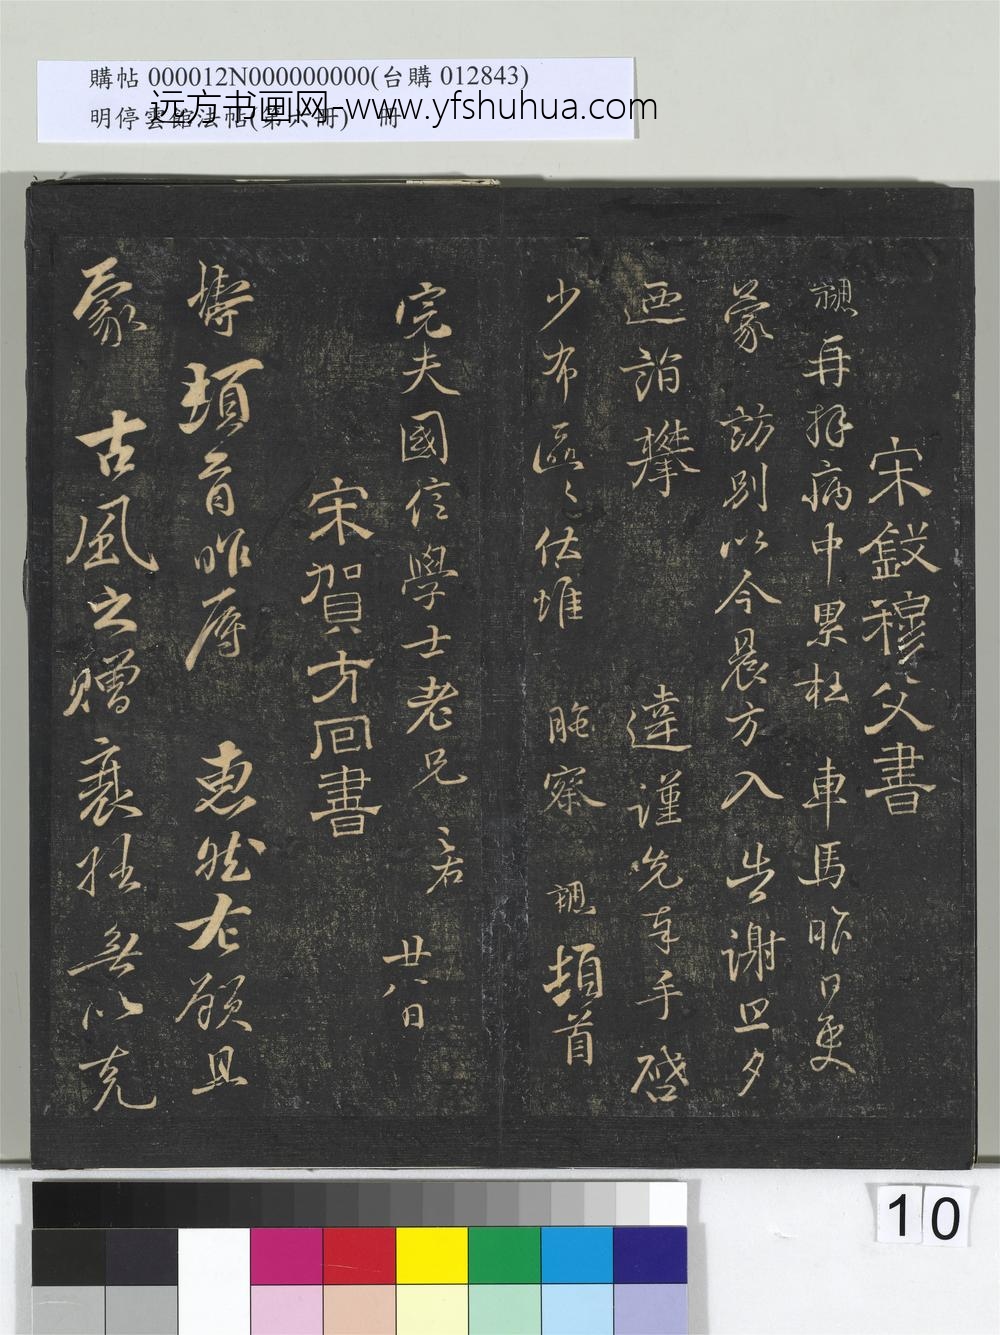 購帖 000012N000000000(台購 012843)
明停雲館法帖(第六冊) 冊
远方书画网-www.yfshuhua.com
宋錢穆父書
勰再拜病中累枉 車馬昨日更
蒙 訪別以今晨方入告謝旦夕
迺詣攀 違謹先奉手 啓
少布區〻伏惟 照察 勰頓首
完夫國信學士老兄 廿八日
宋賀方回書
鑄頓首昨辱 惠然存顧且
蒙 古風之贈衰拙無以克
10